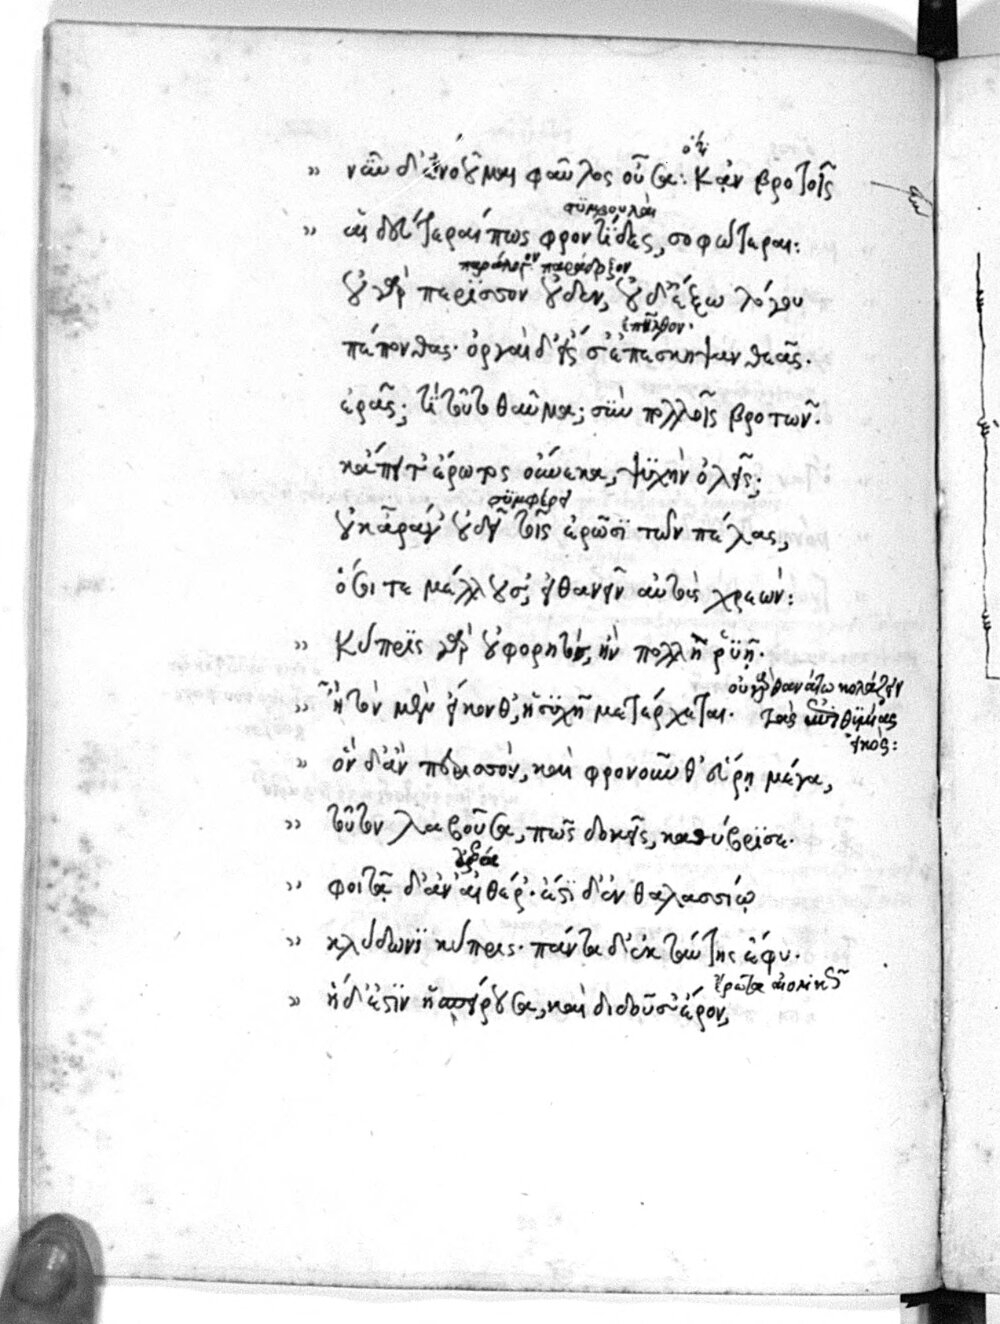 νῦν δ' ἐννοοῦμαι φαῦλος οὖσα: κἀν βροτοῖς
συμβουλαὶ
αἱ δεύτεραί πως φροντίδες, σοφώτεραι:
οὐ γὰρ περισσὸν οὐδὲν, οὐδ' ἔξω λόγου
ἐπῆλθον·
πέπονθας· ὀργαὶ δ' εἰς σ' ἐπέσκηψαν θεᾶς.
ἐρᾷς; τί τοῦτο θαῦμα; σὺν πολλοῖς βροτῶν.
κἄπειτ' ἔρωτος οὕνεκα, ψυχὴν ὀλεῖς;
συμφέρει
οὐκ ἆρά γ' οὐ δεῖ τοῖς ἐρῶσι τῶν πέλας,
ὅσοι τε μέλλουσ', εἰ θανεῖν αὐτοὺς χρεών:
κύπρις γὰρ οὐ φορητὸν, ἢν πολλὴ ῥυῇ·
ἣ τὸν μὲν εἴκονθ', ἡσυχῆ μετέρχεται·
ὃν δ' ἂν περισσὸν, καὶ φρονοῦνθ' εὕρῃ μέγα,
τοῦτον λαβοῦσα, πῶς δοκεῖς, καθύβρισε·
φοιτᾷ δ' ἀν' αἰθέρ'· ἔστι δ' ἐν θαλασσίῳ
κλύδωνι κύπρις· πάντα δ' ἐκ ταύτης ἔφυ·
ἥδ' ἐστὶν ἡ σπείρουσα, καὶ διδοῦσ' ἔρον,